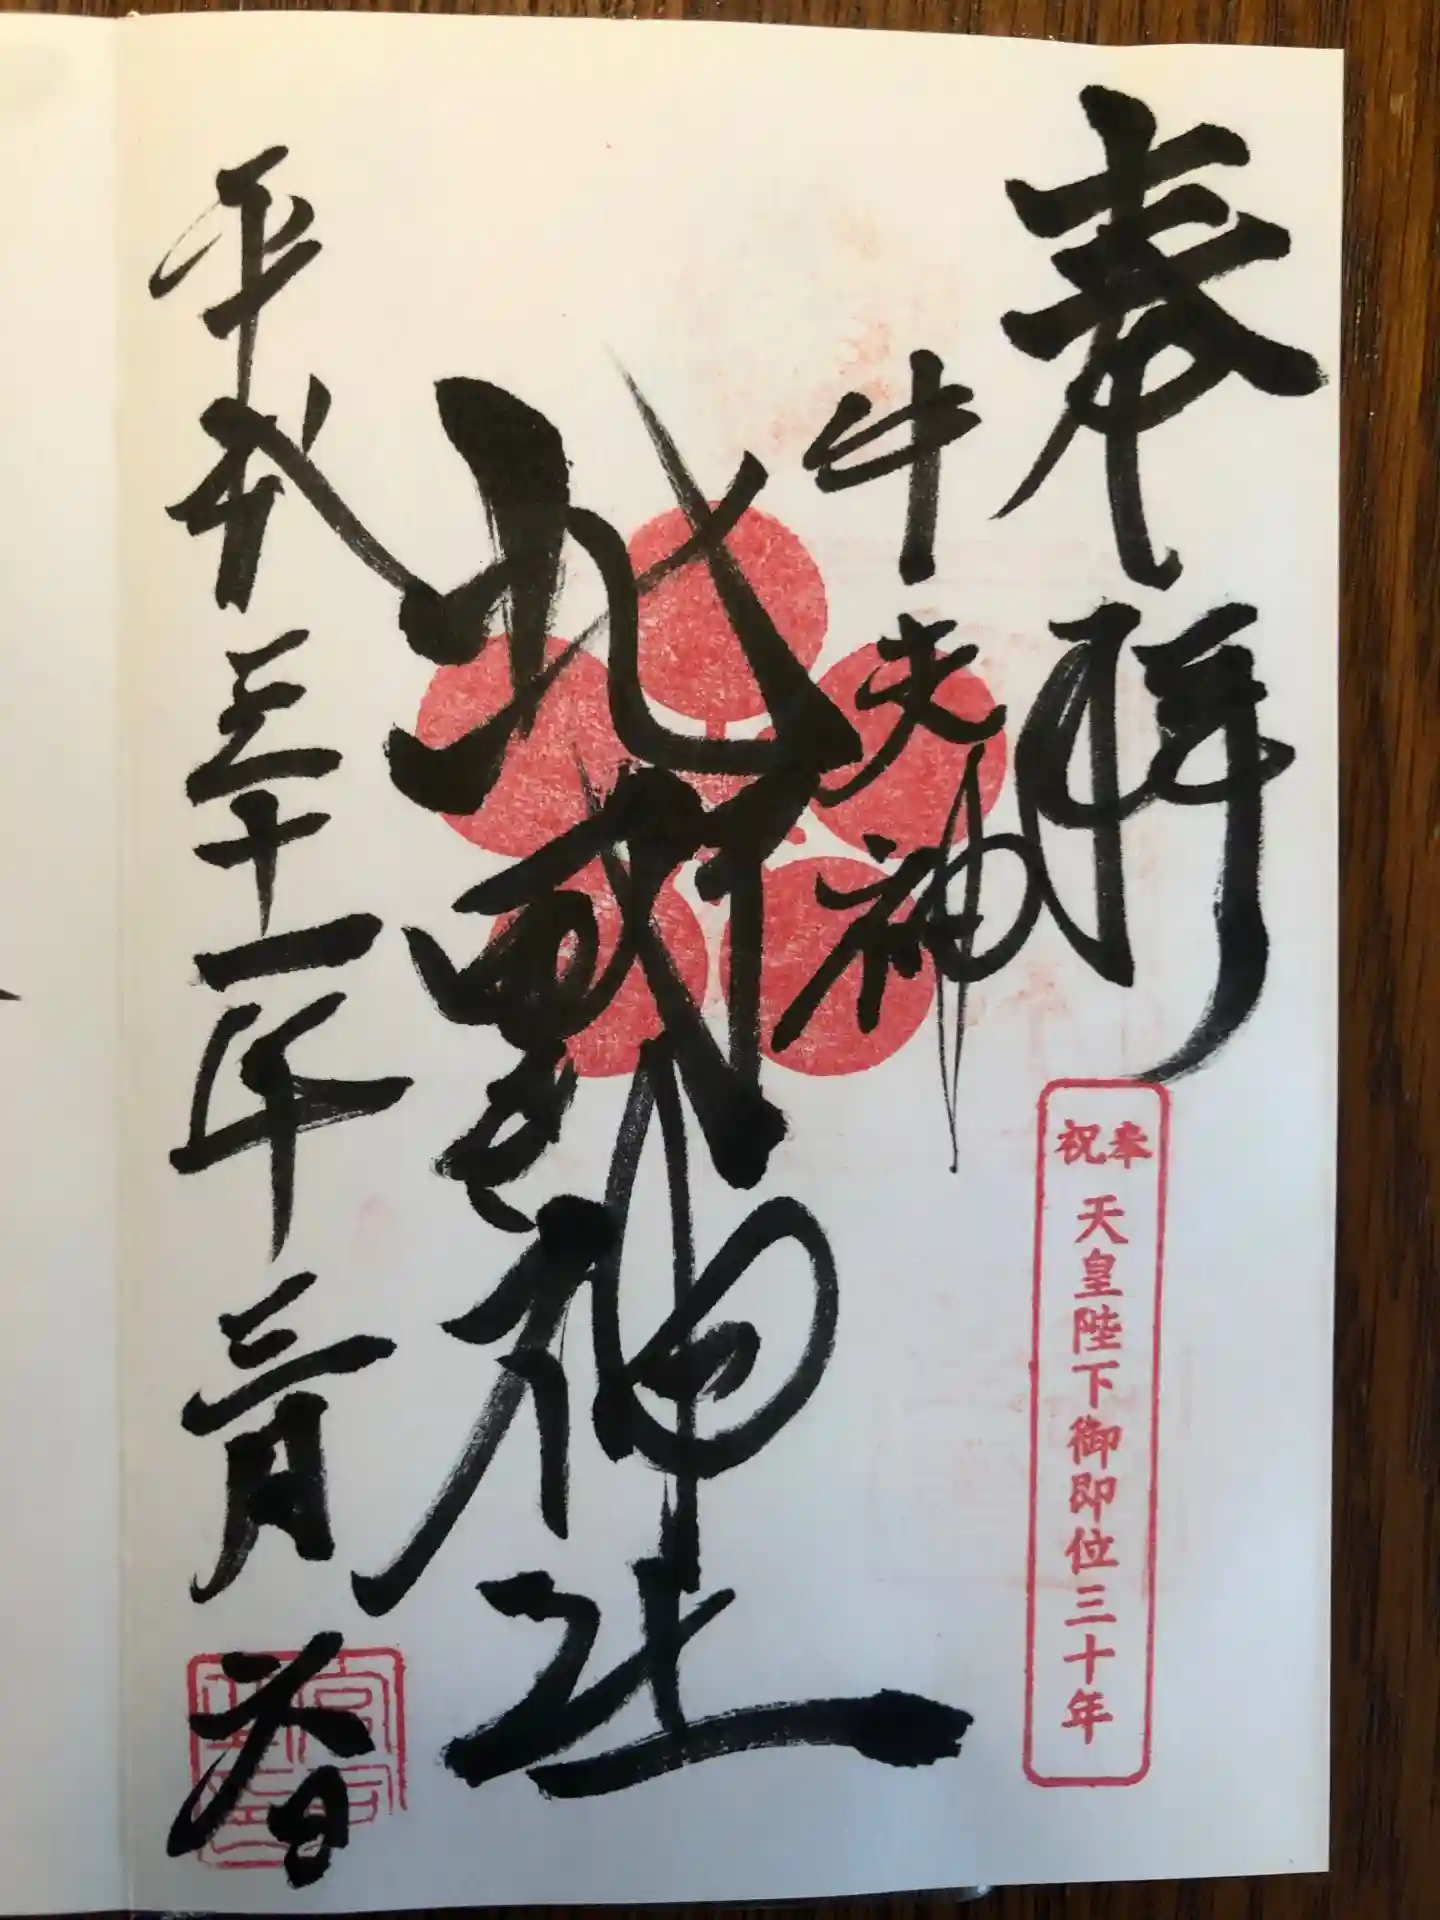 奉拝
奉祝 天皇陛下御即位三十年
牛天神
北野神社
平成三十一年三月日